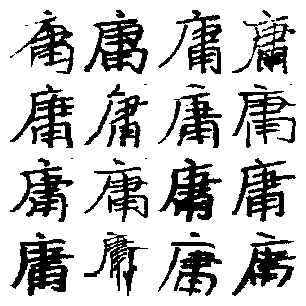 庸庸庸庸
庸庸庸庸
庸庸庸庸
庸庸庸庸